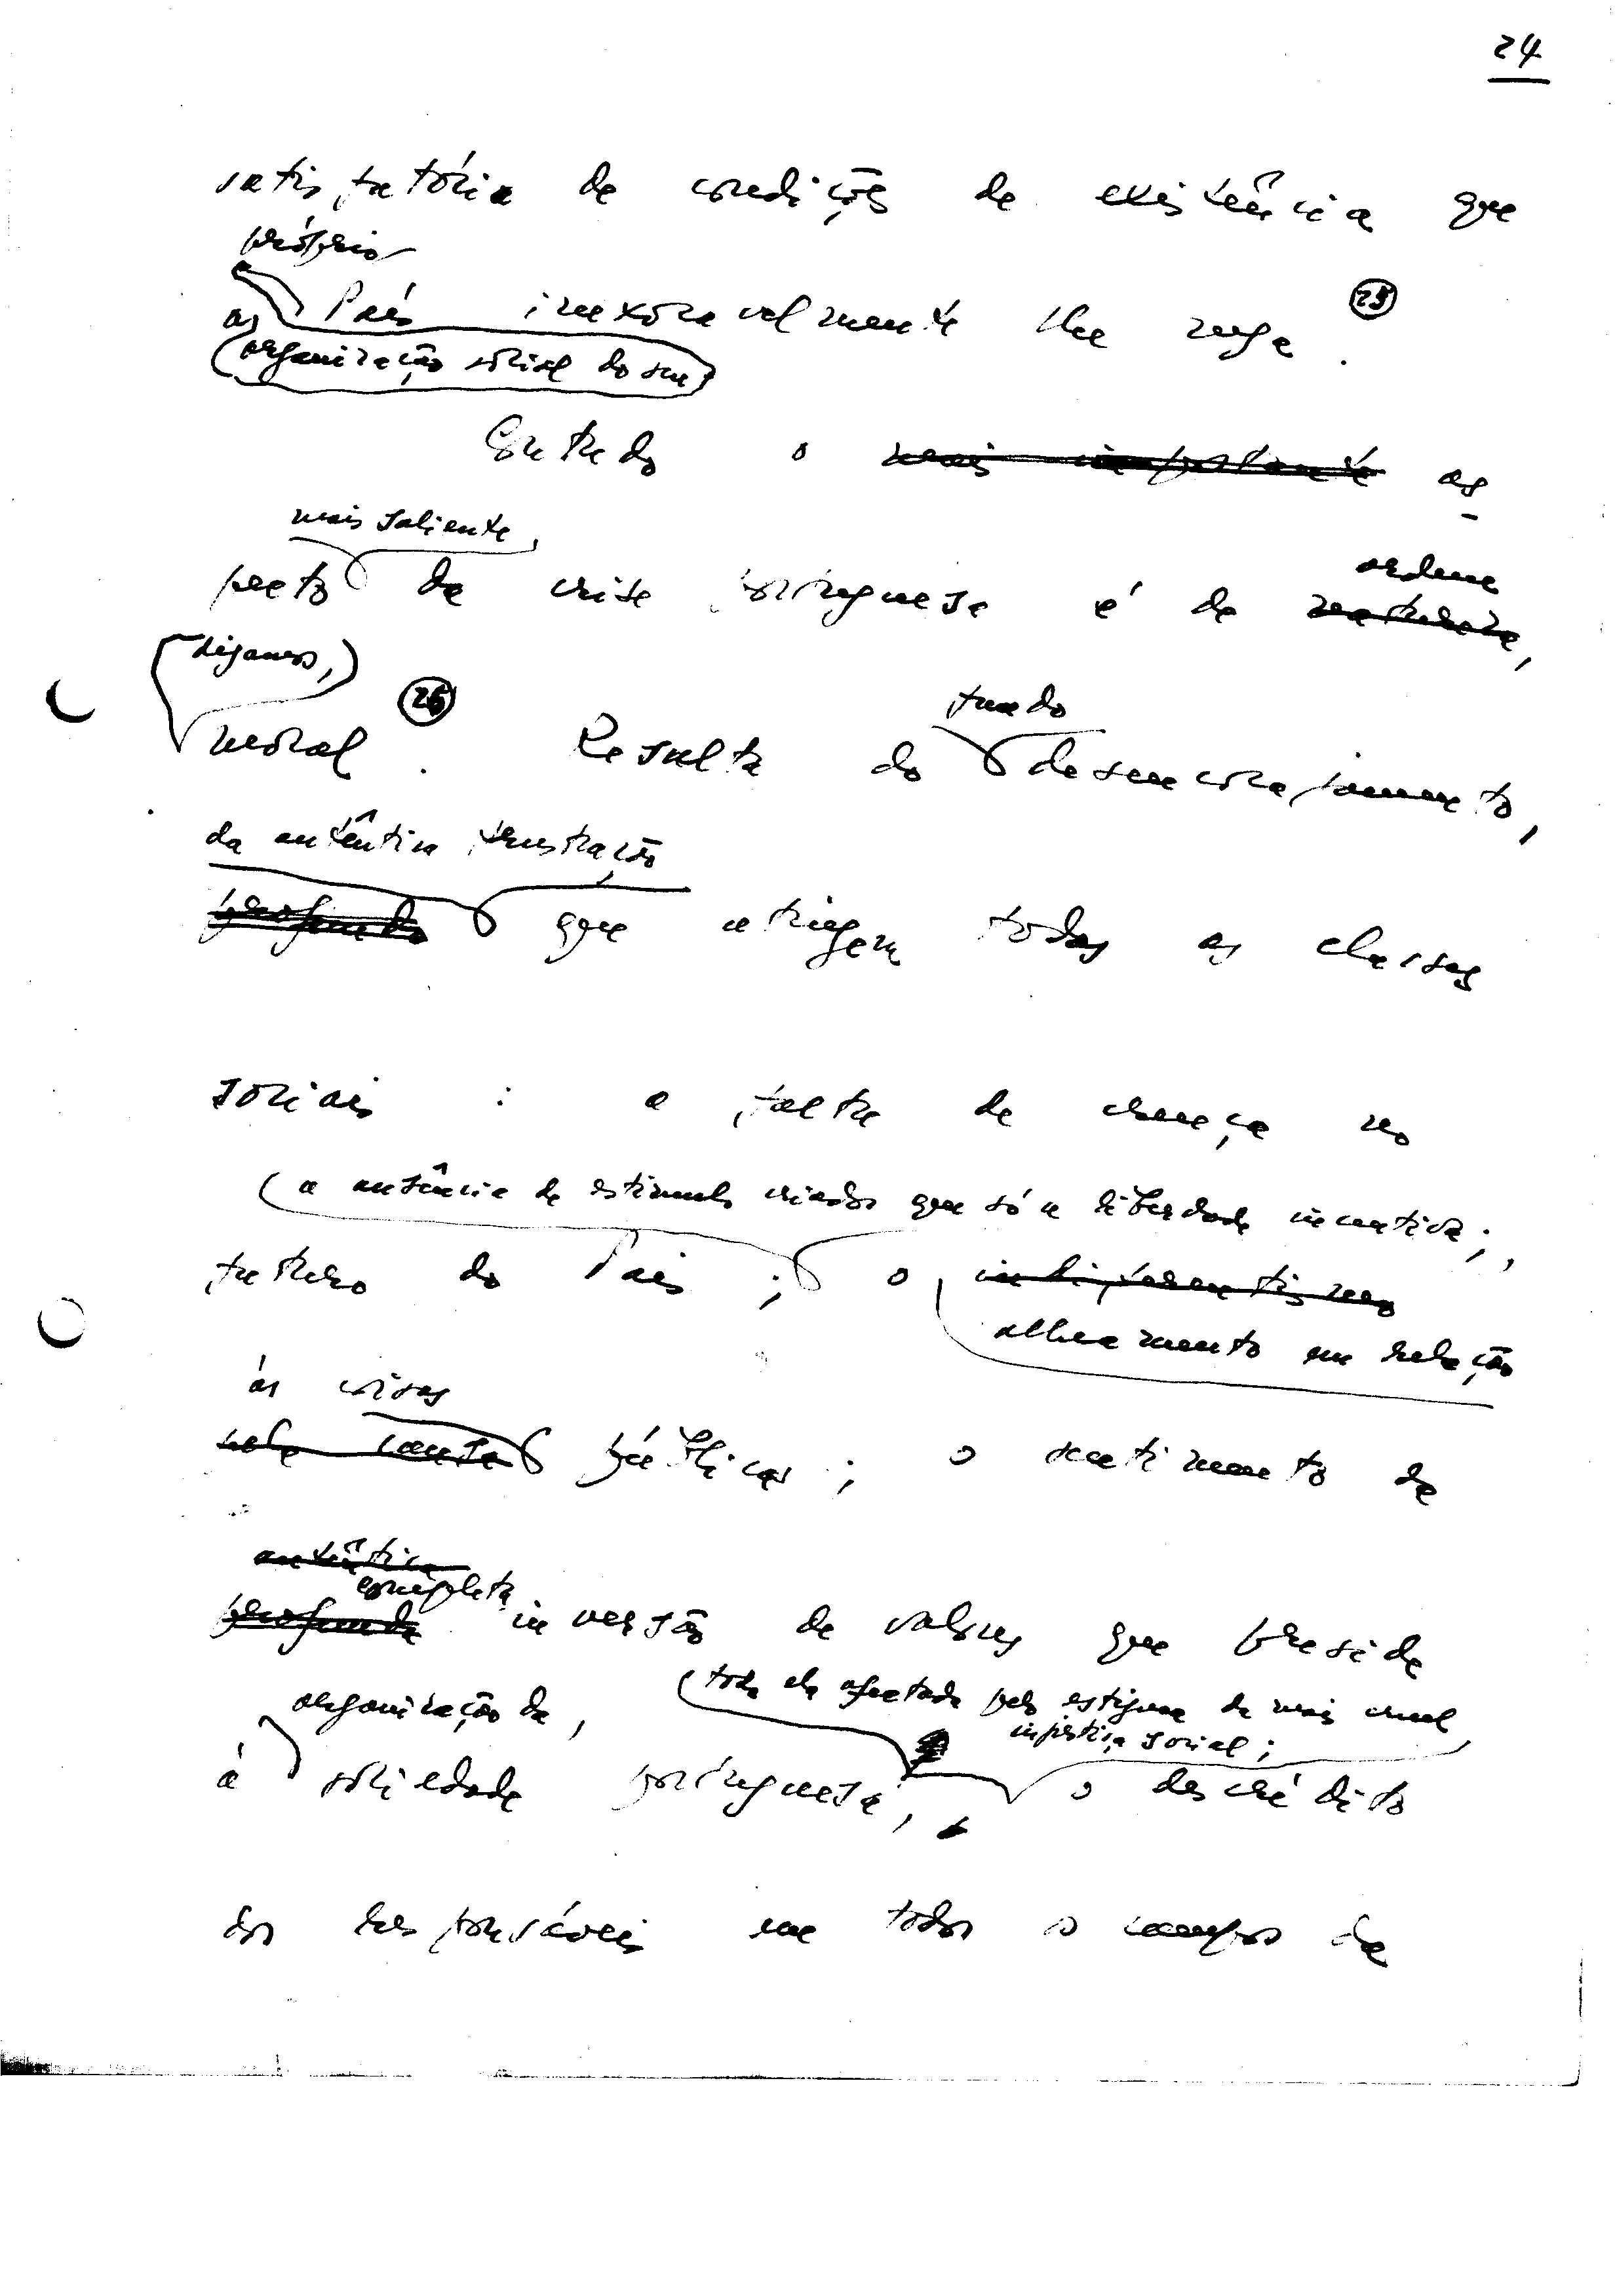 24
satisfatória de condições de existência que
próprio
as País inexoravelmente lhe nega. (25)
organização social do seu
Contudo o mais importante as-
mais saliente,
pecto da crise portuguesa é de natureza,
ordem
digamos,
moral. (26) Resulta do desencorajamento,
fundo
da autêntica frustração
profundo que atingem todas as classes
sociais: a falta de crença no
a ausência de estímulos criados que só a liberdade incentiva;
futuro do País; o indiferentismo,
alheamento em relação
às coisas
pela causa públicas; o sentimento da
autêntica
completa
profunda inversão de valores que preside
organização da, toda ela afectada pelo estigma da mais cruel
injustiça social;
à sociedade portuguesa, o descrédito
dos responsáveis em todos o campos da